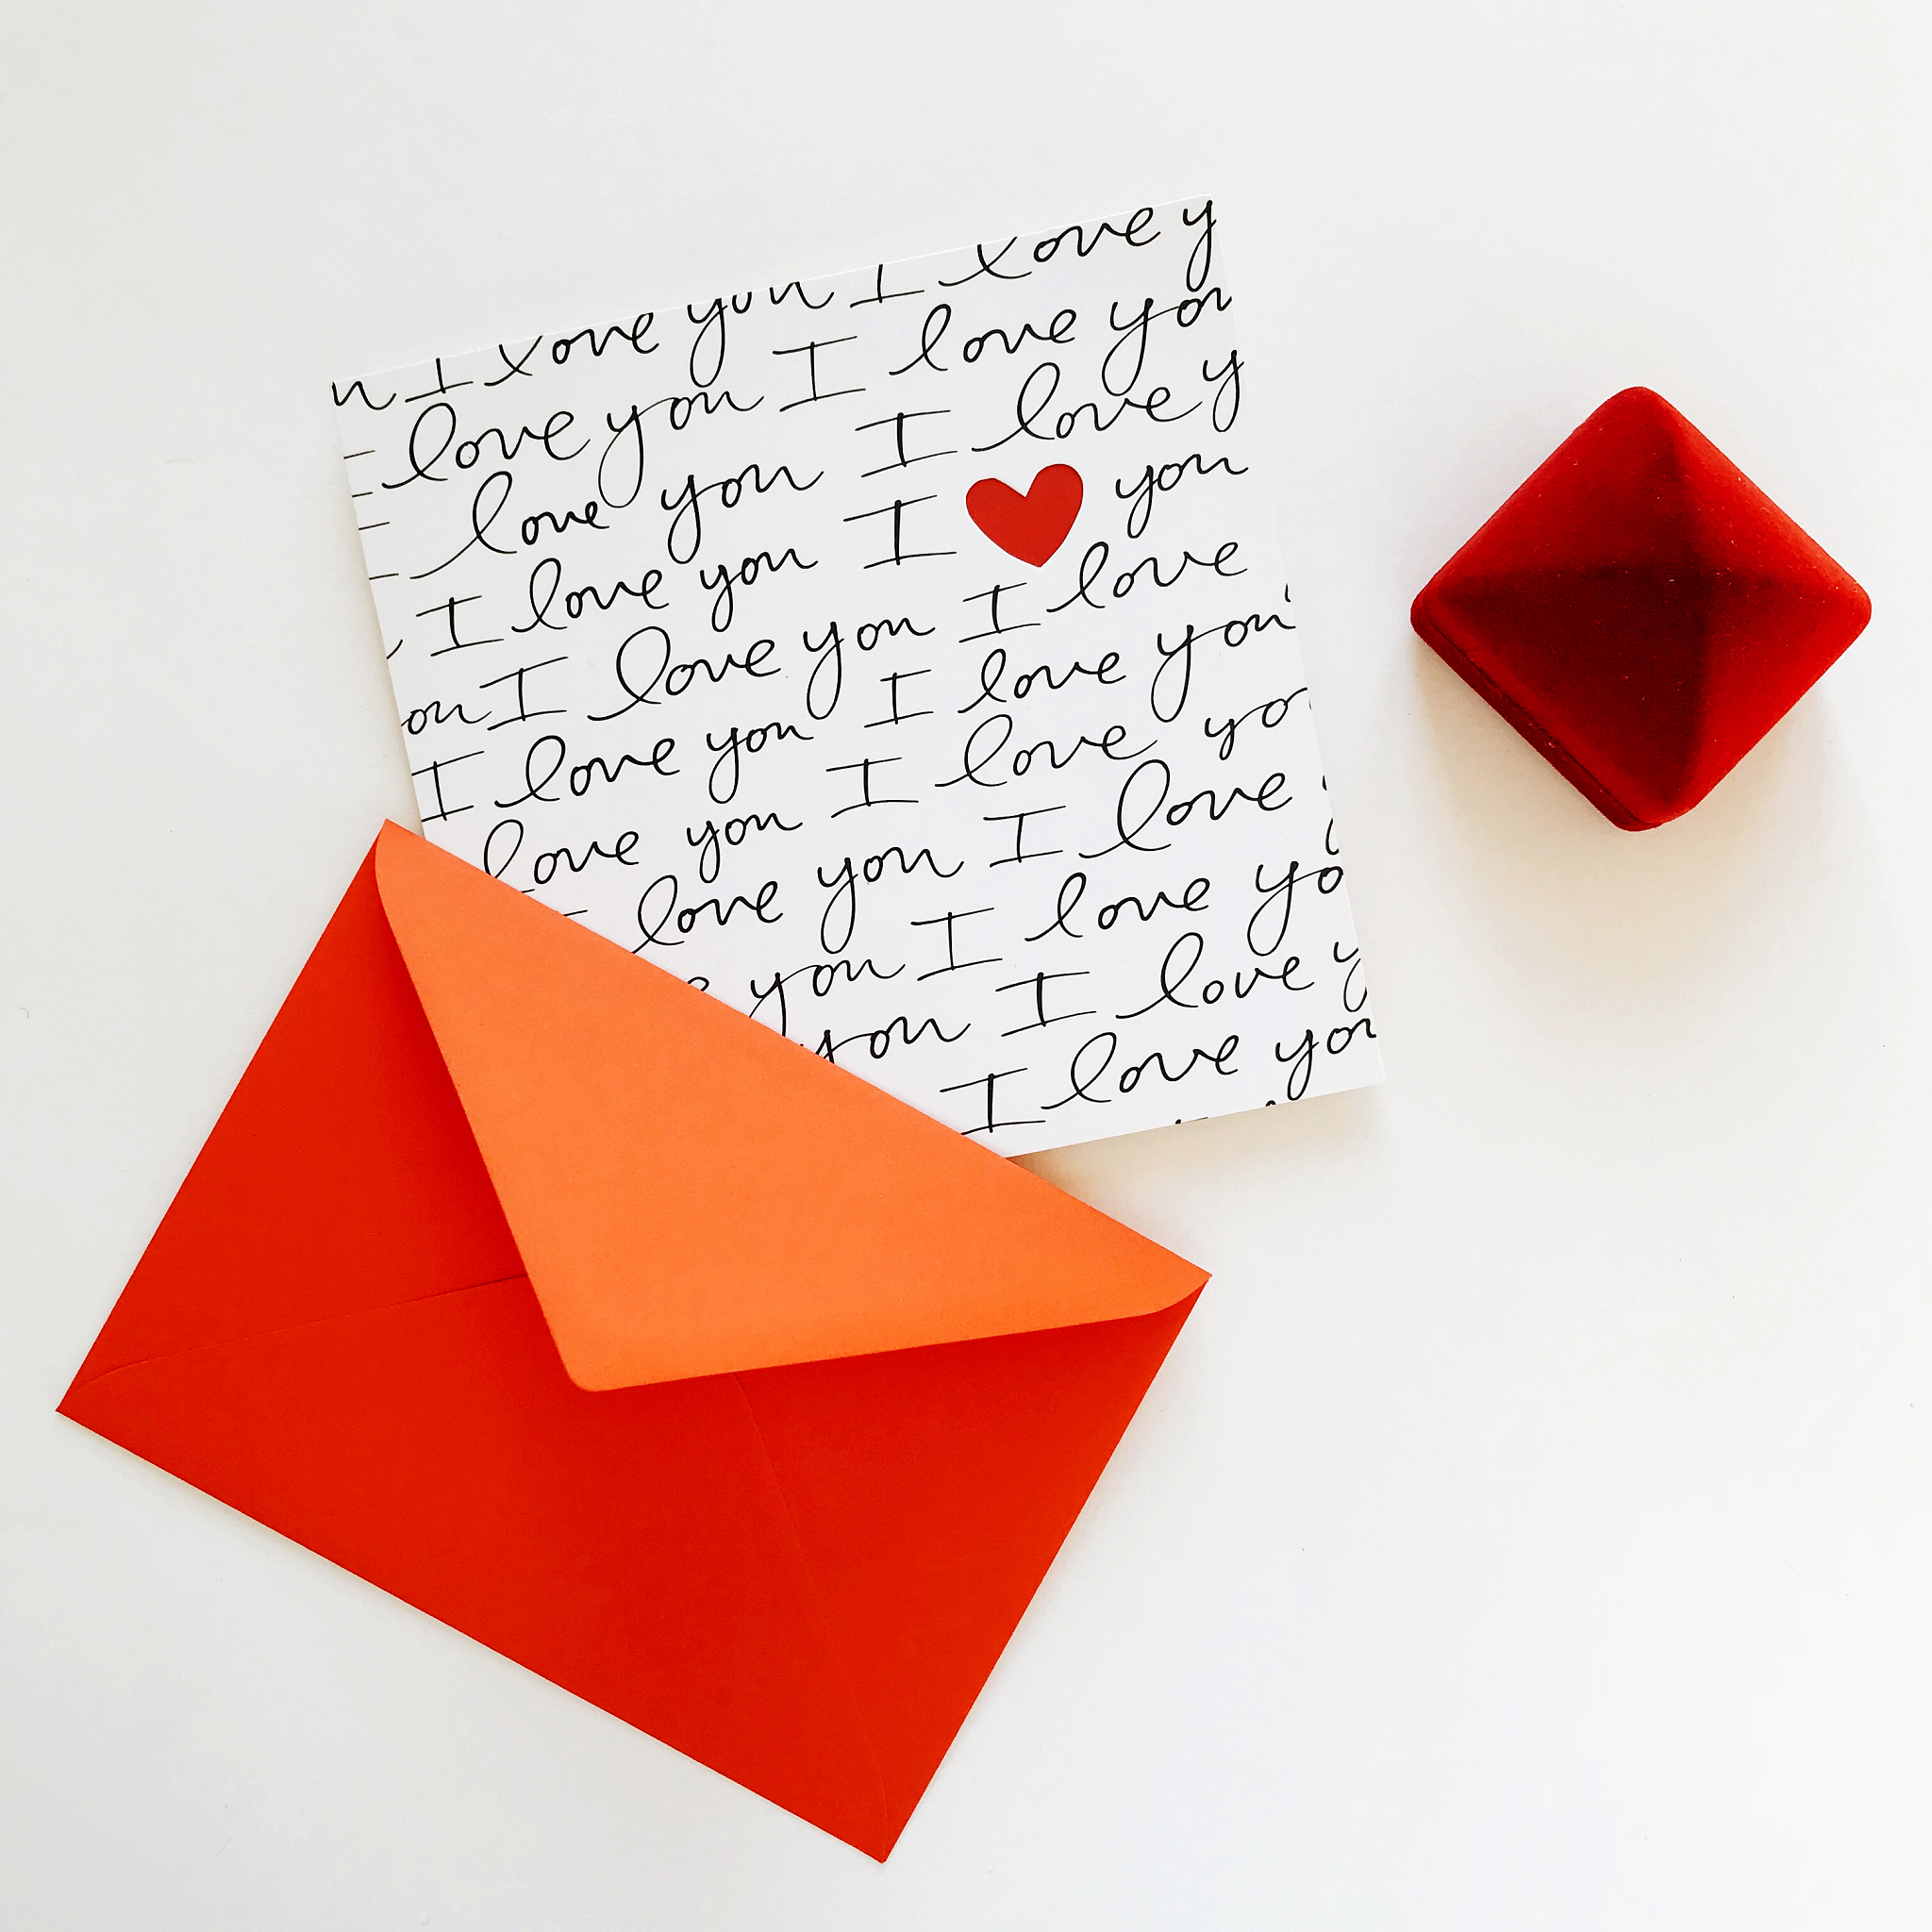 I love you I love y
love you I love you
love you I love y
I love you I ♥ you
I love you I love
I love you I love you
love you I love yo
love you I love
you I love yo
you I love y
I love you